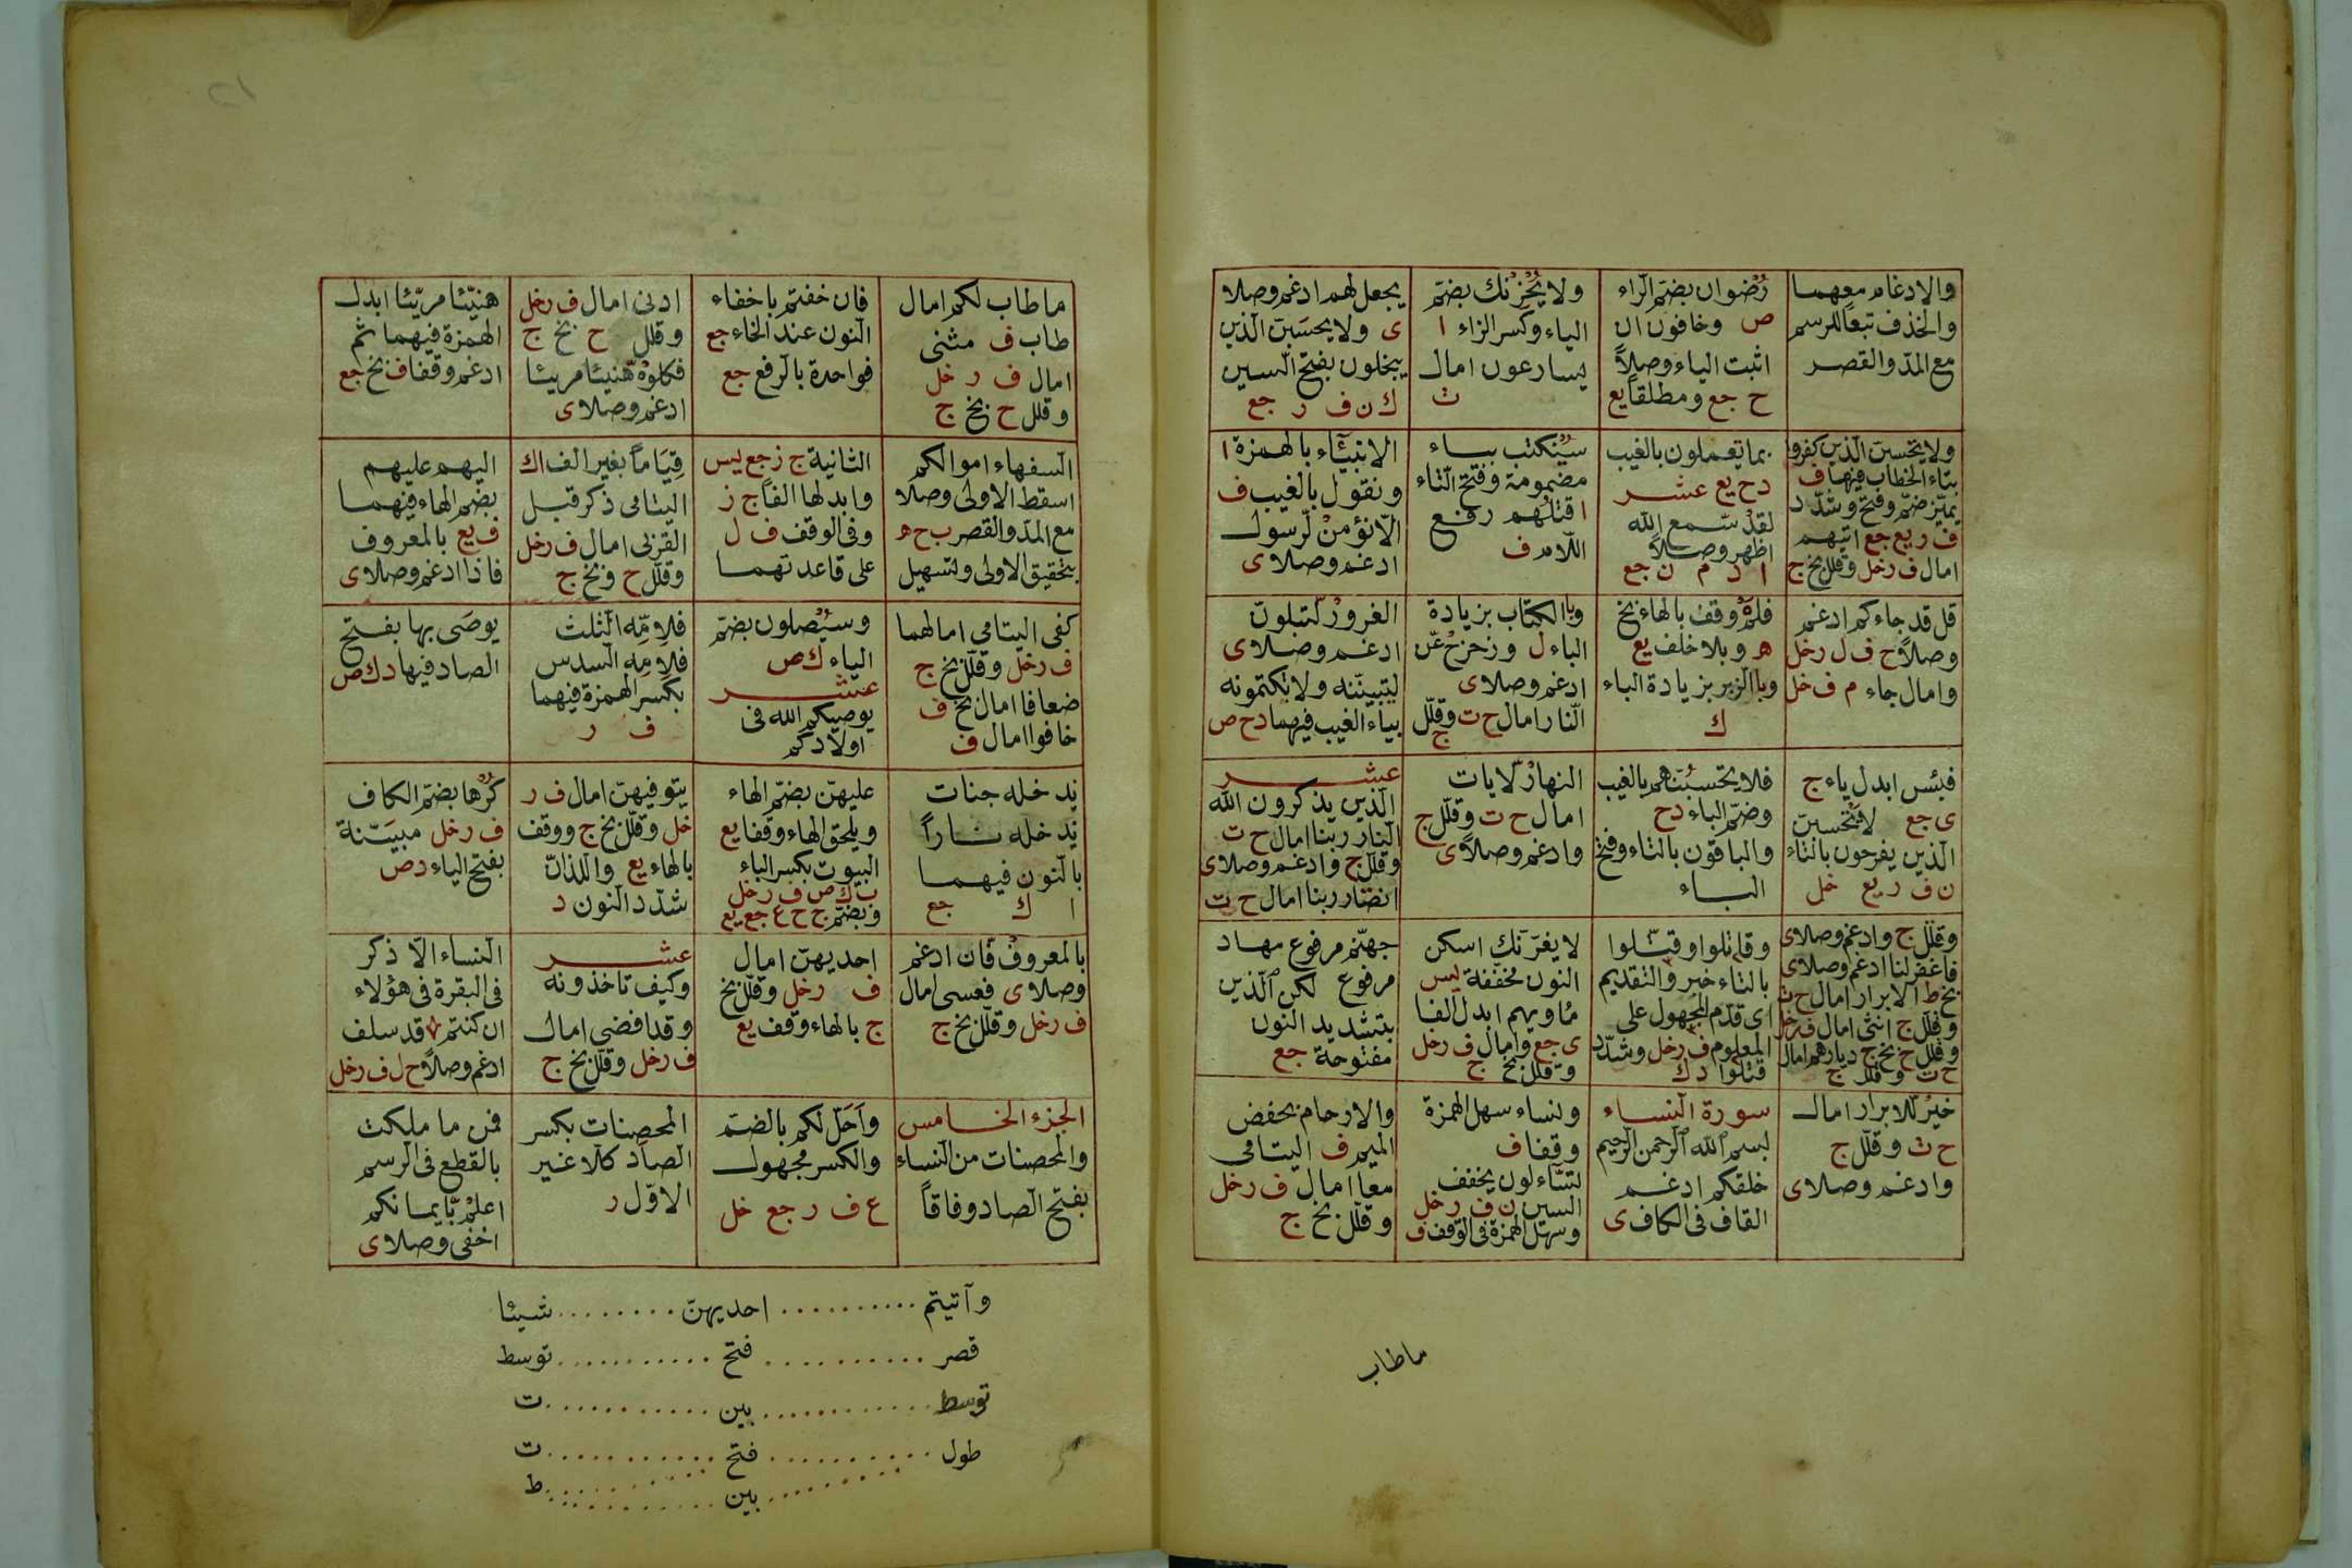 والادغام معهما
والحذف تبعا للرسم
مع المدّ والقصر
رُضوان بضمّ الراء
ص وخافون ان
اثبت الياء وصلاً
ح جع ومطلقا يع
ولا يُحْزنك بضمّ
الياء وكسر الزاء ا
يسارعون امال
ت
يجعل لهم ادغم وصلا
ى ولا يحسَبنّ الذين
يبخلون بفتح السين
ك ن ف ر جع
ولا يحسبنّ الذين كفروا
بتاء الخطاب فيها ف
يميّز ضمّ وفتح وشدّد
ف ر يع جع اتيهم
امال ف رخل وقلل بخ ج
بما تعملون بالغيب
د ح يع عشر
لقد سّمع الله
اظهر وصلاً
ا د م ن جع
سيُكتب بياء
مضمومة وفتح التاء
اقتلُهم رفع
اللام ف
الانبئاء بالهمزة ا
ونقول بالغيب ف
الّا نؤمنْ لّرسول
ادغم وصلا ى
قل قد جاءكم ادغم
وصلاً ح ف ل رخل
وامال جاء م ف خل
فلمَ وقف بالهاء بخ
هـ وبلا خلف يع
وبالزبر بزيادة الباء
ك
وبالكتاب بزيادة
الباء ل وزحزحْ عّن
ادغم وصلا ى
النار امال ح ت وقلّل
ج
الغرورْ لّتبلونّ
ادغم وصلا ى
ليبيننّه ولا يكتمونه
بياء الغيب فيهما د ح ص
فبئس ابدل ياء ج
ى جع لا تحسبنّ
الذين يفرحون بالتاء
ن ف ر يع خل
فلا يحسبُنّهم بالغيب
وضمّ الباء د ح
والباقون بالتاء وفتح
الباء
النهارْ لّايات
امال ح ت وقلّل ج
وادغم وصلاً ى
عشر
الذين يذكرون الله
النار ربنا امال ح ت
وقلل ج وادغم وصلا ى
انصار ربنا امال ح ت
وقلل ج وادغم وصلا ى
فاغفر لنا ادغم وصلا ى
بخ ط الابرار امال ح ت
وقلل ج انثى امال ف رخل
وقلل ح بخ ج ديارهم امال
ح ت وقلل ج
وقاتلوا وقتلوا
بالتاء خير والتقديم
اى قدّم المجهول على
المعلوم ف رخل وشدّد
قتلوا د ك
لا يغرّنك اسكن
النون مخففة يس
مأويهم ابدل الفا
ى جع وامال ف رخل
وقلل بخ ج
جهنم مرفوع مهاد
مرفوع لكن الذين
بتشديد النون
مفتوحة جع
خيرٌ للابرار امال
ح ت وقلّل ج
وادغم وصلا ى
سورة النساء
بسم الله الرحمن الرحيم
خلقكم ادغم
القاف فى الكاف ى
ونساء سهل الهمزة
وقفا ف
لتساءلون بخفف
السين ن ف رخل
وسهّل الهمزة فى الوقف ف
والارحام بخفض
الميم ف اليتامى
معا امال ف رخل
وقلّل بخ ج
ماطاب
ما طاب لكم امال
طاب ف مثنى
امال ف ر خل
وقلل ح بخ ج
فان خفتم باخفاء
النون عند الخاء جع
فواحدة بالرفع جع
ادنى امال ف رخل
وقلل ح بخ ج
فكلوهْ هّنيئا مريئا
ادغم وصلا ى
هنيّئا مريّئا ابدل
الهمزة فيهما ثم
ادغم وقفا ف بخ جع
السفهاء اموالكم
اسقط الاولى وصلا
مع المدّ والقصر ب ح ه
بتحقيق الاولى وتسهيل
الثانية ج ز جع يس
وابدلها الفاً ج ز
وفى الوقف ف ل
على قاعدتهما
قِيَاماً بغير الف ا ك
اليتامى ذكر قبل
القربى امال ف رخل
وقلّل ح وبخ ج
اليهم عليهم
بضم الهاء فيهما
ف يع بالمعروف
فاذا ادغم وصلا ى
كفى اليتامى امالهما
ف رخل وقلّل بخ ج
ضعافا امال بخ ف
خافوا امال ف
وسيُصلون بضمّ
الياء ك ص
عشر
يوصيكم الله فى
اولادكم
فلامّه الثلث
فلامّه السدس
بكسر الهمزة فيهما
ف ر
يوصَى بها بفتح
الصاد فيها د ك ص
ندخله جنات
ندخله ناراً
بالنون فيهما
ا ك جع
عليهنّ بضمّ الهاء
ويلحق الهاء وقفا يع
البيوت بكسر الباء
ب ك ص ف رخل
وبضمّ ج ح ع جع يع
يتوفيهنّ امال ف ر
خل وقلّل بخ ج ووقف
بالهاء يع واللذان
شدّد النون د
كُرها بضم الكاف
ف رخل مبيَنة
بفتح الياء د ص
بالمعروفْ فّان ادغم
وصلا ى فعسى امال
ف رخل وقلّل بخ ج
احديهنّ امال
ف رخل وقلّل بخ
ج بالهاء وقف يع
عشر
وكيف تاخذونه
وقد افضى امال
ف رخل وقلل بخ ج
النساء الّا ذكر
فى البقرة فى هؤلاء
ان كنتم قد سلف
ادغم وصلاً ح ل ف رخل
الجزء الخامس
والمحصنات من النساء
بفتح الصاد وفاقاً
وأحلّ لكم بالضمّ
والكسر مجهول
ع ف ر جع خل
المحصنات بكسر
الصاد كلّا غير
الاوّل ر
فمن ما ملكت
بالقطع فى الرسم
اعلمْ بّايمانكم
اخفى وصلا ى
وآتيتم .......... احديهنّ ........ شيئا
قصر .......... فتح .......... توسط
توسط .......... بين .......... ت
طول .......... فتح .......... ت
.......... بين .......... ط